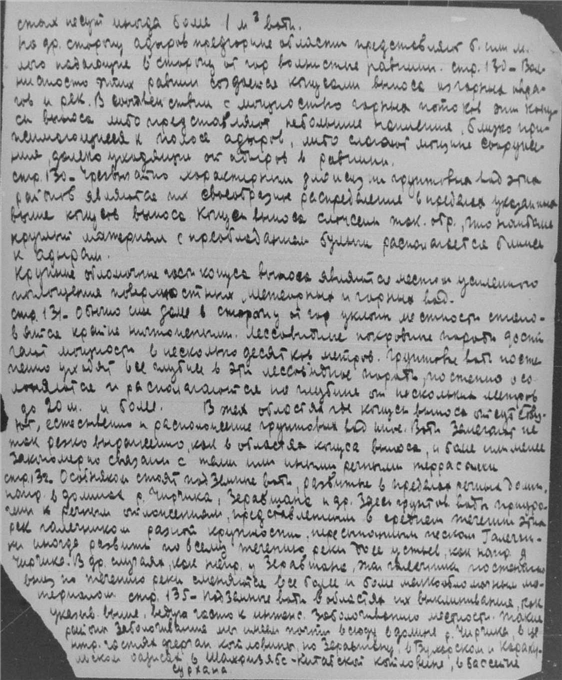 стых несут иногда более 1 м³ воды.
По др. сторону адыров предгорные области представляют б. или м.
полого падающие в сторону от гор волнистые равнины. стр. 130 - Вол-
нистость этих равнин создается конусами выноса из горных овра-
гов и рек. В соответствии с мощностью горных потоков эти кону-
са выноса либо представляют небольшие поднятия, близко при-
жимающиеся к полосе адыров, либо слагают мощные сооруже-
ния далеко уходящие от адыров в равнины.
стр. 130. Чрезвычайно характерным для жизни грунтовых вод этих
районов является их своеобразное распределение в пределах указанных
выше конусов выноса. Конуса выноса сложены так. обр., что наиболее
крупный материал с преобладанием булыг располагается ближе
к адырам.
Крупные обломочные части конуса выноса являются местом усиленного
поглощения поверхностных, метеорных и горных вод.
стр. 131 - Обычно еще далее в сторону от гор уклоны местности станов-
вятся крайне ничтожными. Лессовидные покровные породы дости-
гают мощности в несколько десятков метров. Грунтовые воды посте-
пенно уходят все глубже в эти лессовидные породы, постепенно осо-
лоняются и располагаются на глубине от нескольких метров
до 20 м. и более. В тех областях где конусы выноса отсутству-
ют, естественно и расположение грунтовых вод иное. Воды залегают не
так резко выражено, как в областях конуса выноса, и более или менее
закономерно связаны с теми или иными речными террасами
стр. 132. Особняком стоят подземные воды, развитые в пределах речных долин,
напр. в долинах р. Чирчика, Зеравшана и др. Здесь грунтов. воды приуро-
чены к речным отложениям, представленным в среднем течении этих
рек галечником разной крупности, пересыпанным песком. Галечни-
ки иногда развиты по всему течению реки до ее устья, как напр. у
Чирчика. В др. случаях, как напр. у Зеравшана, эти галечники постепенно
вниз по течению реки сменяются все более и более мелкообломочным ма-
териалом. стр. 135 - Подземные воды в областях их выклинивания, как
указыв. выше, ведут часто к интенс. заболачиванию местности. Такие
районы заболачивания мы имеем почти всюду в долине р. Чирчика, в це-
нтр. частях ферган. котловины, по Зеравшану, в Бухарском и Караку-
льском оазисах, в Шахризябс-Китабской котловине, в бассейне
Сурхана.